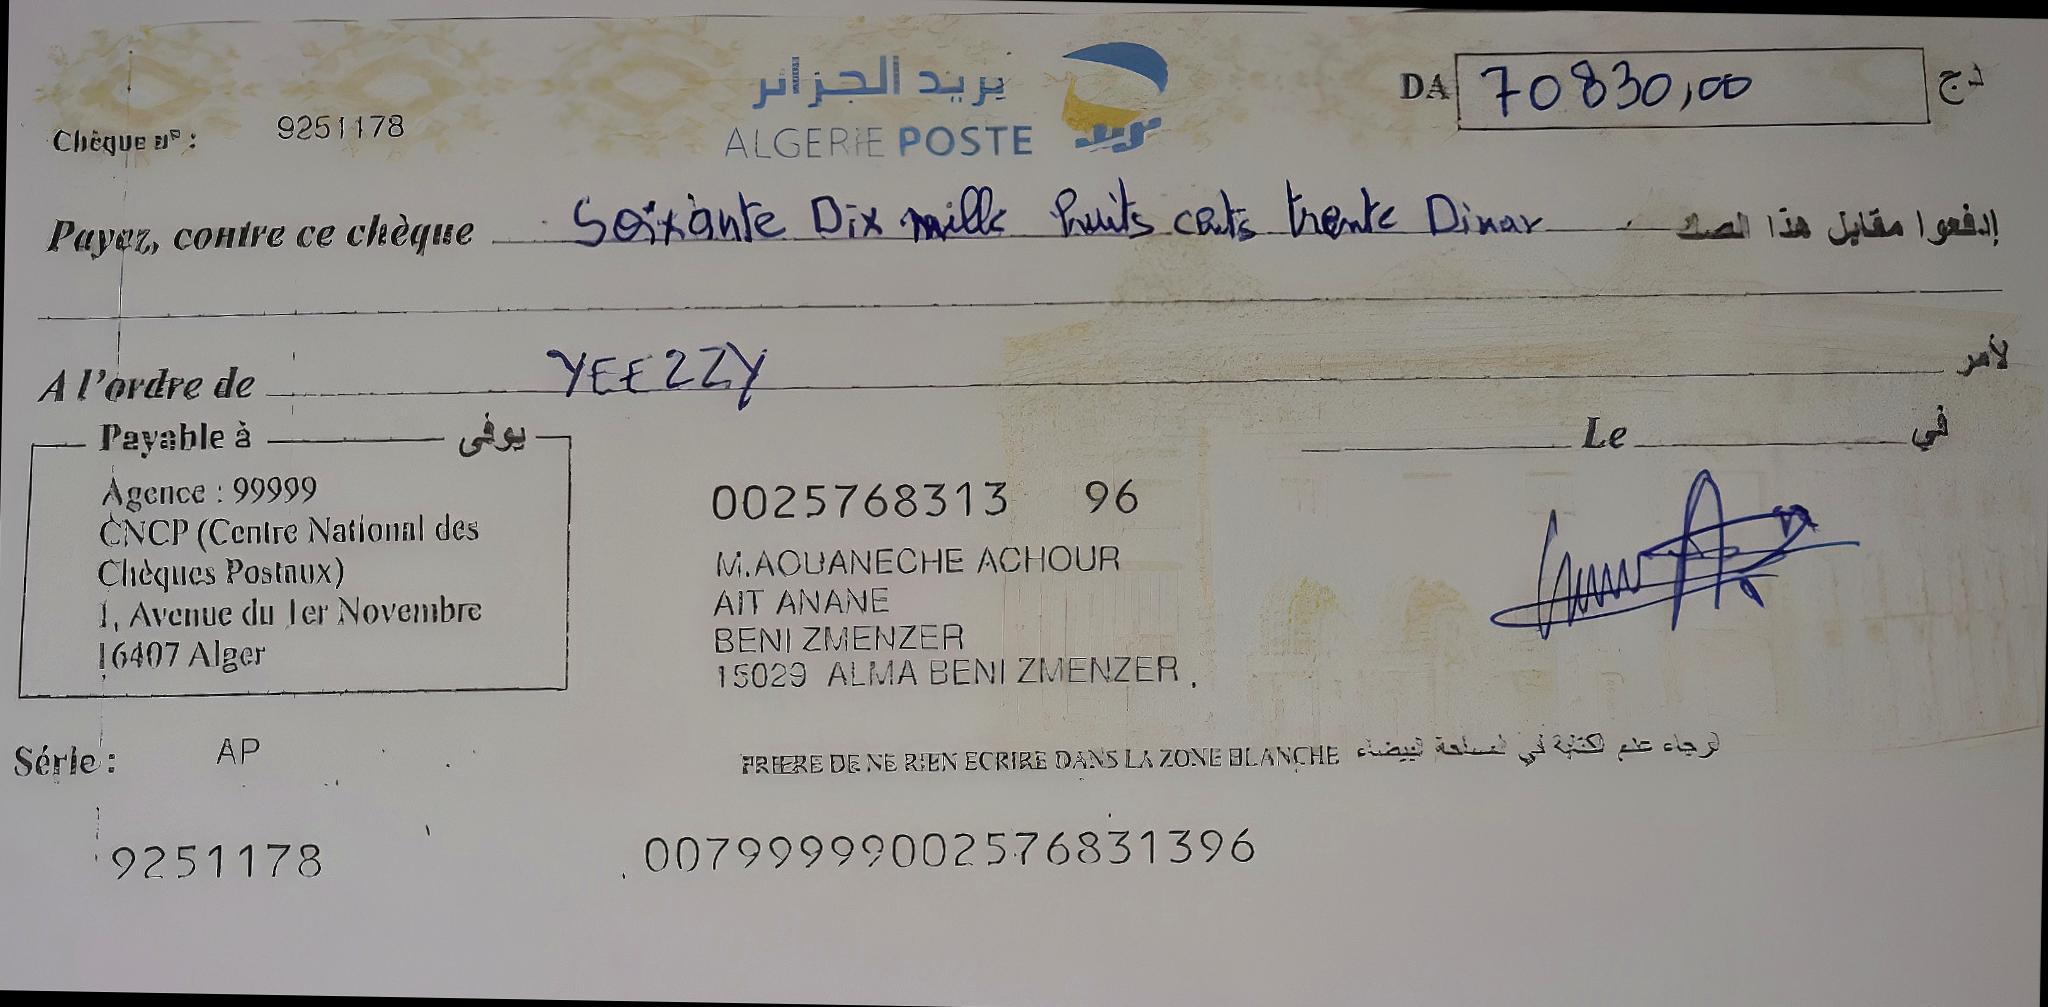 بريد الجزائر
ALGERIE POSTE
بريد
DA 70830,00 دج
Chèque nº : 9251178
Payez, contre ce chèque Soixante Dix mille huits cents trente Dinar إدفعوا مقابل هذا الصك
A l'ordre de YEEZZY لأمر
Payable à يوفى
Le في
Agence : 99999
CNCP (Centre National des
Chèques Postaux)
1, Avenue du 1er Novembre
16407 Alger
0025768313 96
M.AOUANECHE ACHOUR
AIT ANANE
BENI ZMENZER
15029 ALMA BENI ZMENZER
Série : AP
PRIERE DE NE RIEN ECRIRE DANS LA ZONE BLANCHE الرجاء عدم الكتابة في المساحة البيضاء
9251178 00799999002576831396